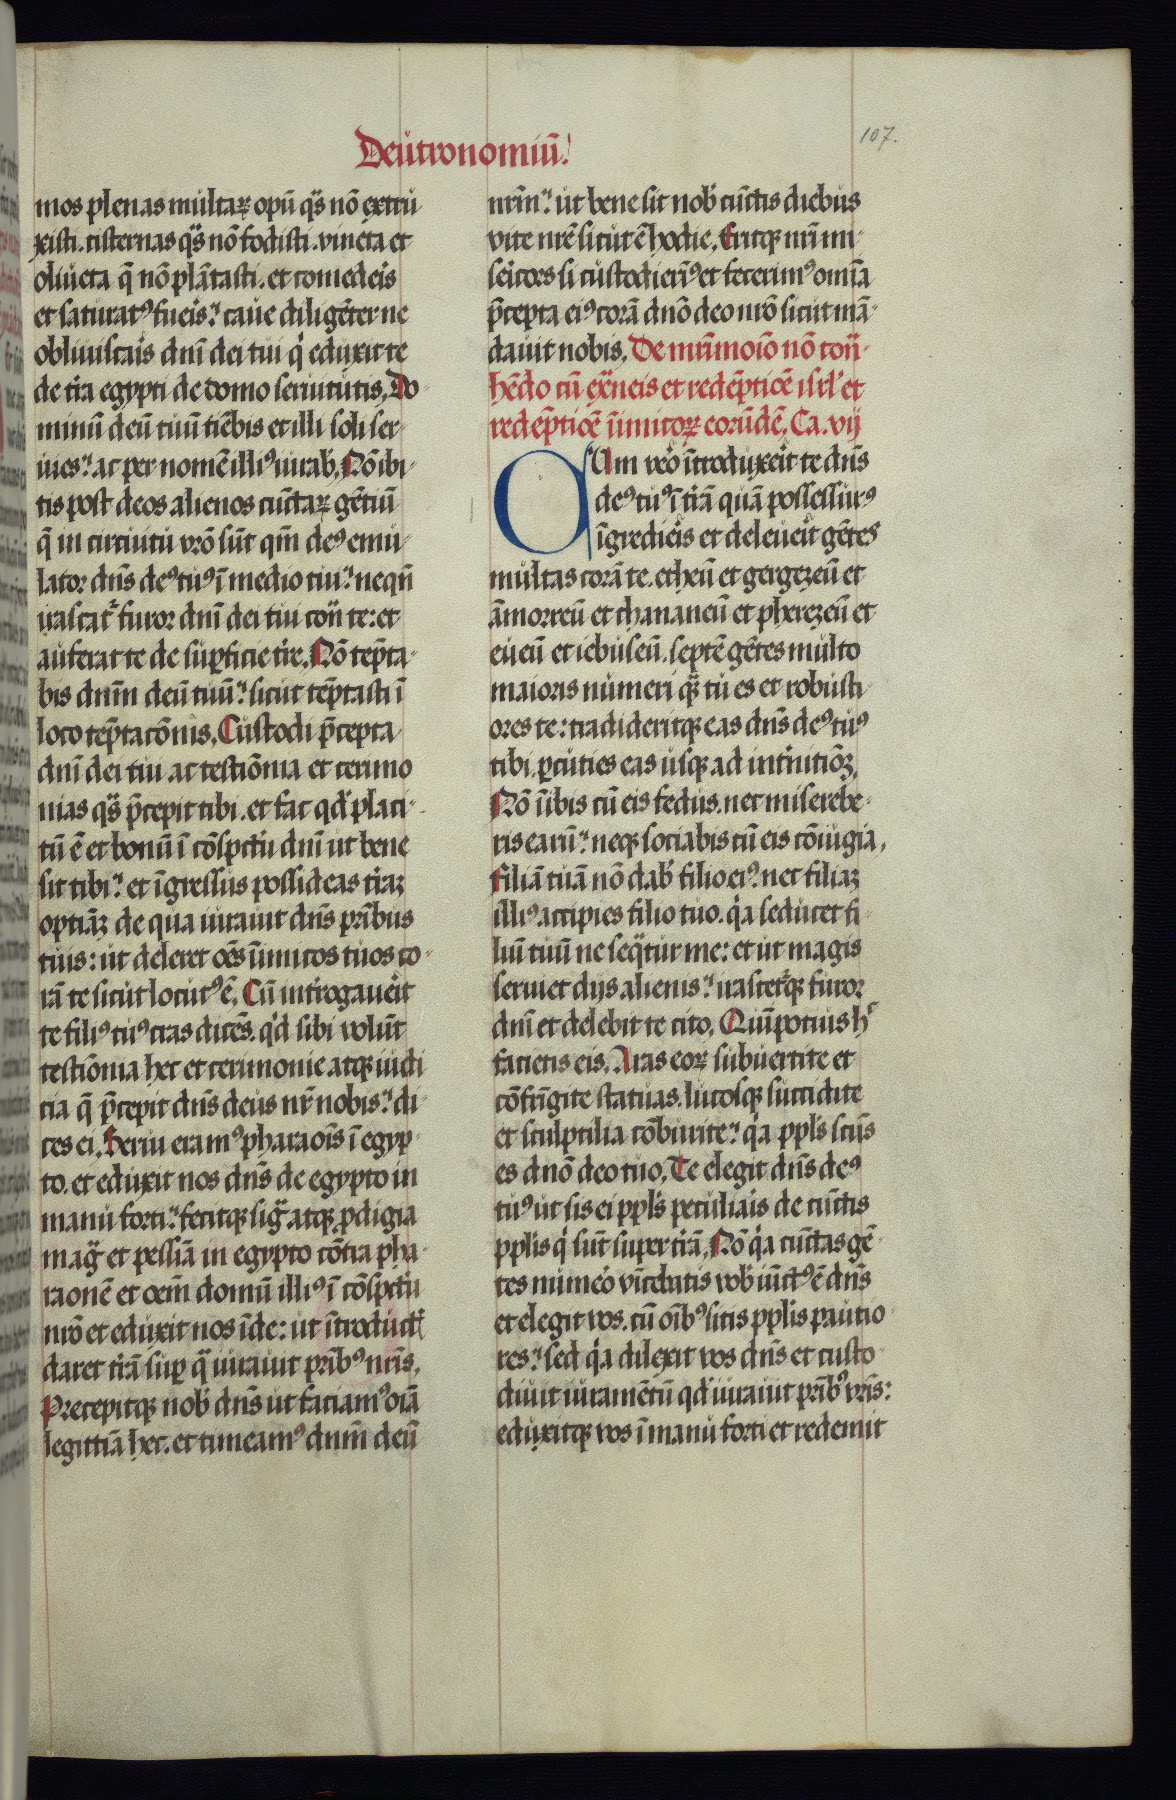 Deutronomiū.
107.
mos plenas multaꝝ opū q̄s nō extru
xisti. cisternas q̄s nō fodisti. vineta et
oliueta q̄ nō plātasti. et comederis
et saturatꝰ fueris: caue diligēter ne
obliuiscaris dn̄i dei tui qͥ eduxit te
de t̄ra egypti de domo seruitutis, Do
minū deū tuū tiēbis et illi soli ser
uies: ac per nomē illiꝰ iurab̓, Nō ibi
tis post deos alienos cūctaꝝ gētiū
q̄ in circuitu vr̄o sūt qm̄ deꝰ emu
lator dn̄s deꝰ tuꝰ ī medio tui: neqn̄
irascat̄ furor dn̄i dei tui con̄ te: et
auferat te de suꝑficie t̄re, Nō tēpta
bis dn̄m deū tuū: sicut tēptasti ī
loco tēptacōnis, Custodi p̄cepta
dn̄i dei tui ac testiōnia et cerimo
nias q̄s p̄cepit tibi. et fac qd̓ placi
tū ē et bonū ī cōspc̄tu dn̄i ut bene
sit tibi: et īgressus possideas t̄raꝫ
optiāꝫ de qua iurauit dn̄s pr̄ibus
tuis: ut deleret oēs īimicos tuos co
rā te sicut locutꝰ ē, Cū introgauerit
te filiꝰ tuꝰ cras dicēs. qͥd sibi volūt
testiōnia hec et cerimonie atqꝫ iudi
cia q̄ p̄cepit dn̄s deus nr̄ nobis: di
ces ei, Serui eramꝰ pharaōis ī egyp
to. et eduxit nos dn̄s de egypto in
manu forti: fecitqꝫ sig̃ atqꝫ ꝓdigia
mag̃ et pessīa in egypto cōtra pha
raonē et oem̄ domū illiꝰ ī cōspc̄tu
nr̄o et eduxit nos īde: ut ītroductꝭ
daret t̄rā suꝑ q̄ iurauit pr̄ibꝰ nr̄is,
Precepitqꝫ nob̓ dn̄s ut faciamꝰ oīa
legittīa hec. et timeamꝰ dnm̄ deū
nr̄m: ut bene sit nob̓ cūctis diebus
vite nr̄e sicut ē hodie, Eritqꝫ nr̄i mi
sericors si custodierimꝰ et fecerimꝰ omīa
p̄cepta eiꝰ corā dn̄o deo nr̄o sicut mā
dauit nobis, De mr̄imoīo nō con̄
hēdo cū ex̄neis et redēptiōe isrl̓ et
redēptiōe īimicoꝝ eorūdē, Ca. vij
CUm vēo ītroduxerit te dn̄s
deꝰ tuꝰ ī t̄rā quā possessurꝰ
īgredieris et deleuerit gētes
multas corā te. etheū et gergezeū et
āmorreū et chananeū et pherezeū et
eueū et iebuseū. septē gētes multo
maioris numeri q̄ tu es et robusti
ores te: tradideritqꝫ eas dn̄s deꝰ tuꝰ
tibi. ꝑcuties eas usqꝫ ad intnitiōꝫ,
Nō īibis cū eis fedus. nec miserebe
ris earū: neqꝫ sociabis cū eis cōiugia,
Filiā tuā nō dab̓ filio eiꝰ. nec filiaꝫ
illiꝰ accipies filio tuo. qͥa seducet fi
liū tuū ne seq̄tur me: et ut magis
seruiet dijs alienis: irascet̄qꝫ furor
dn̄i et delebit te cito, Quīpotius hͨ
facietis eis, Aras eoꝝ subuertite et
cōfrīgite statuas. lucosqꝫ succidite
et sculptilia cōburite: qͥa ppl̓s scūs
es dn̄o deo tuo, Te elegit dn̄s deꝰ
tuꝰ ut sis ei ppl̓s peculiaris de cūctis
ppl̓is qͥ sūt super t̄rā, Nō qͥa cūctas gē
tes nūmeō vīcebatis vob̓ iūctꝰ ē dn̄s
et elegit vos. cū oībꝰ sitis ppl̓is paucio
res: sed qͥa dilexit vos dn̄s et custo
diuit iuramētū qd̓ iurauit pr̄ibꝰ vr̄is:
eduxitqꝫ vos ī manu forti et redemit